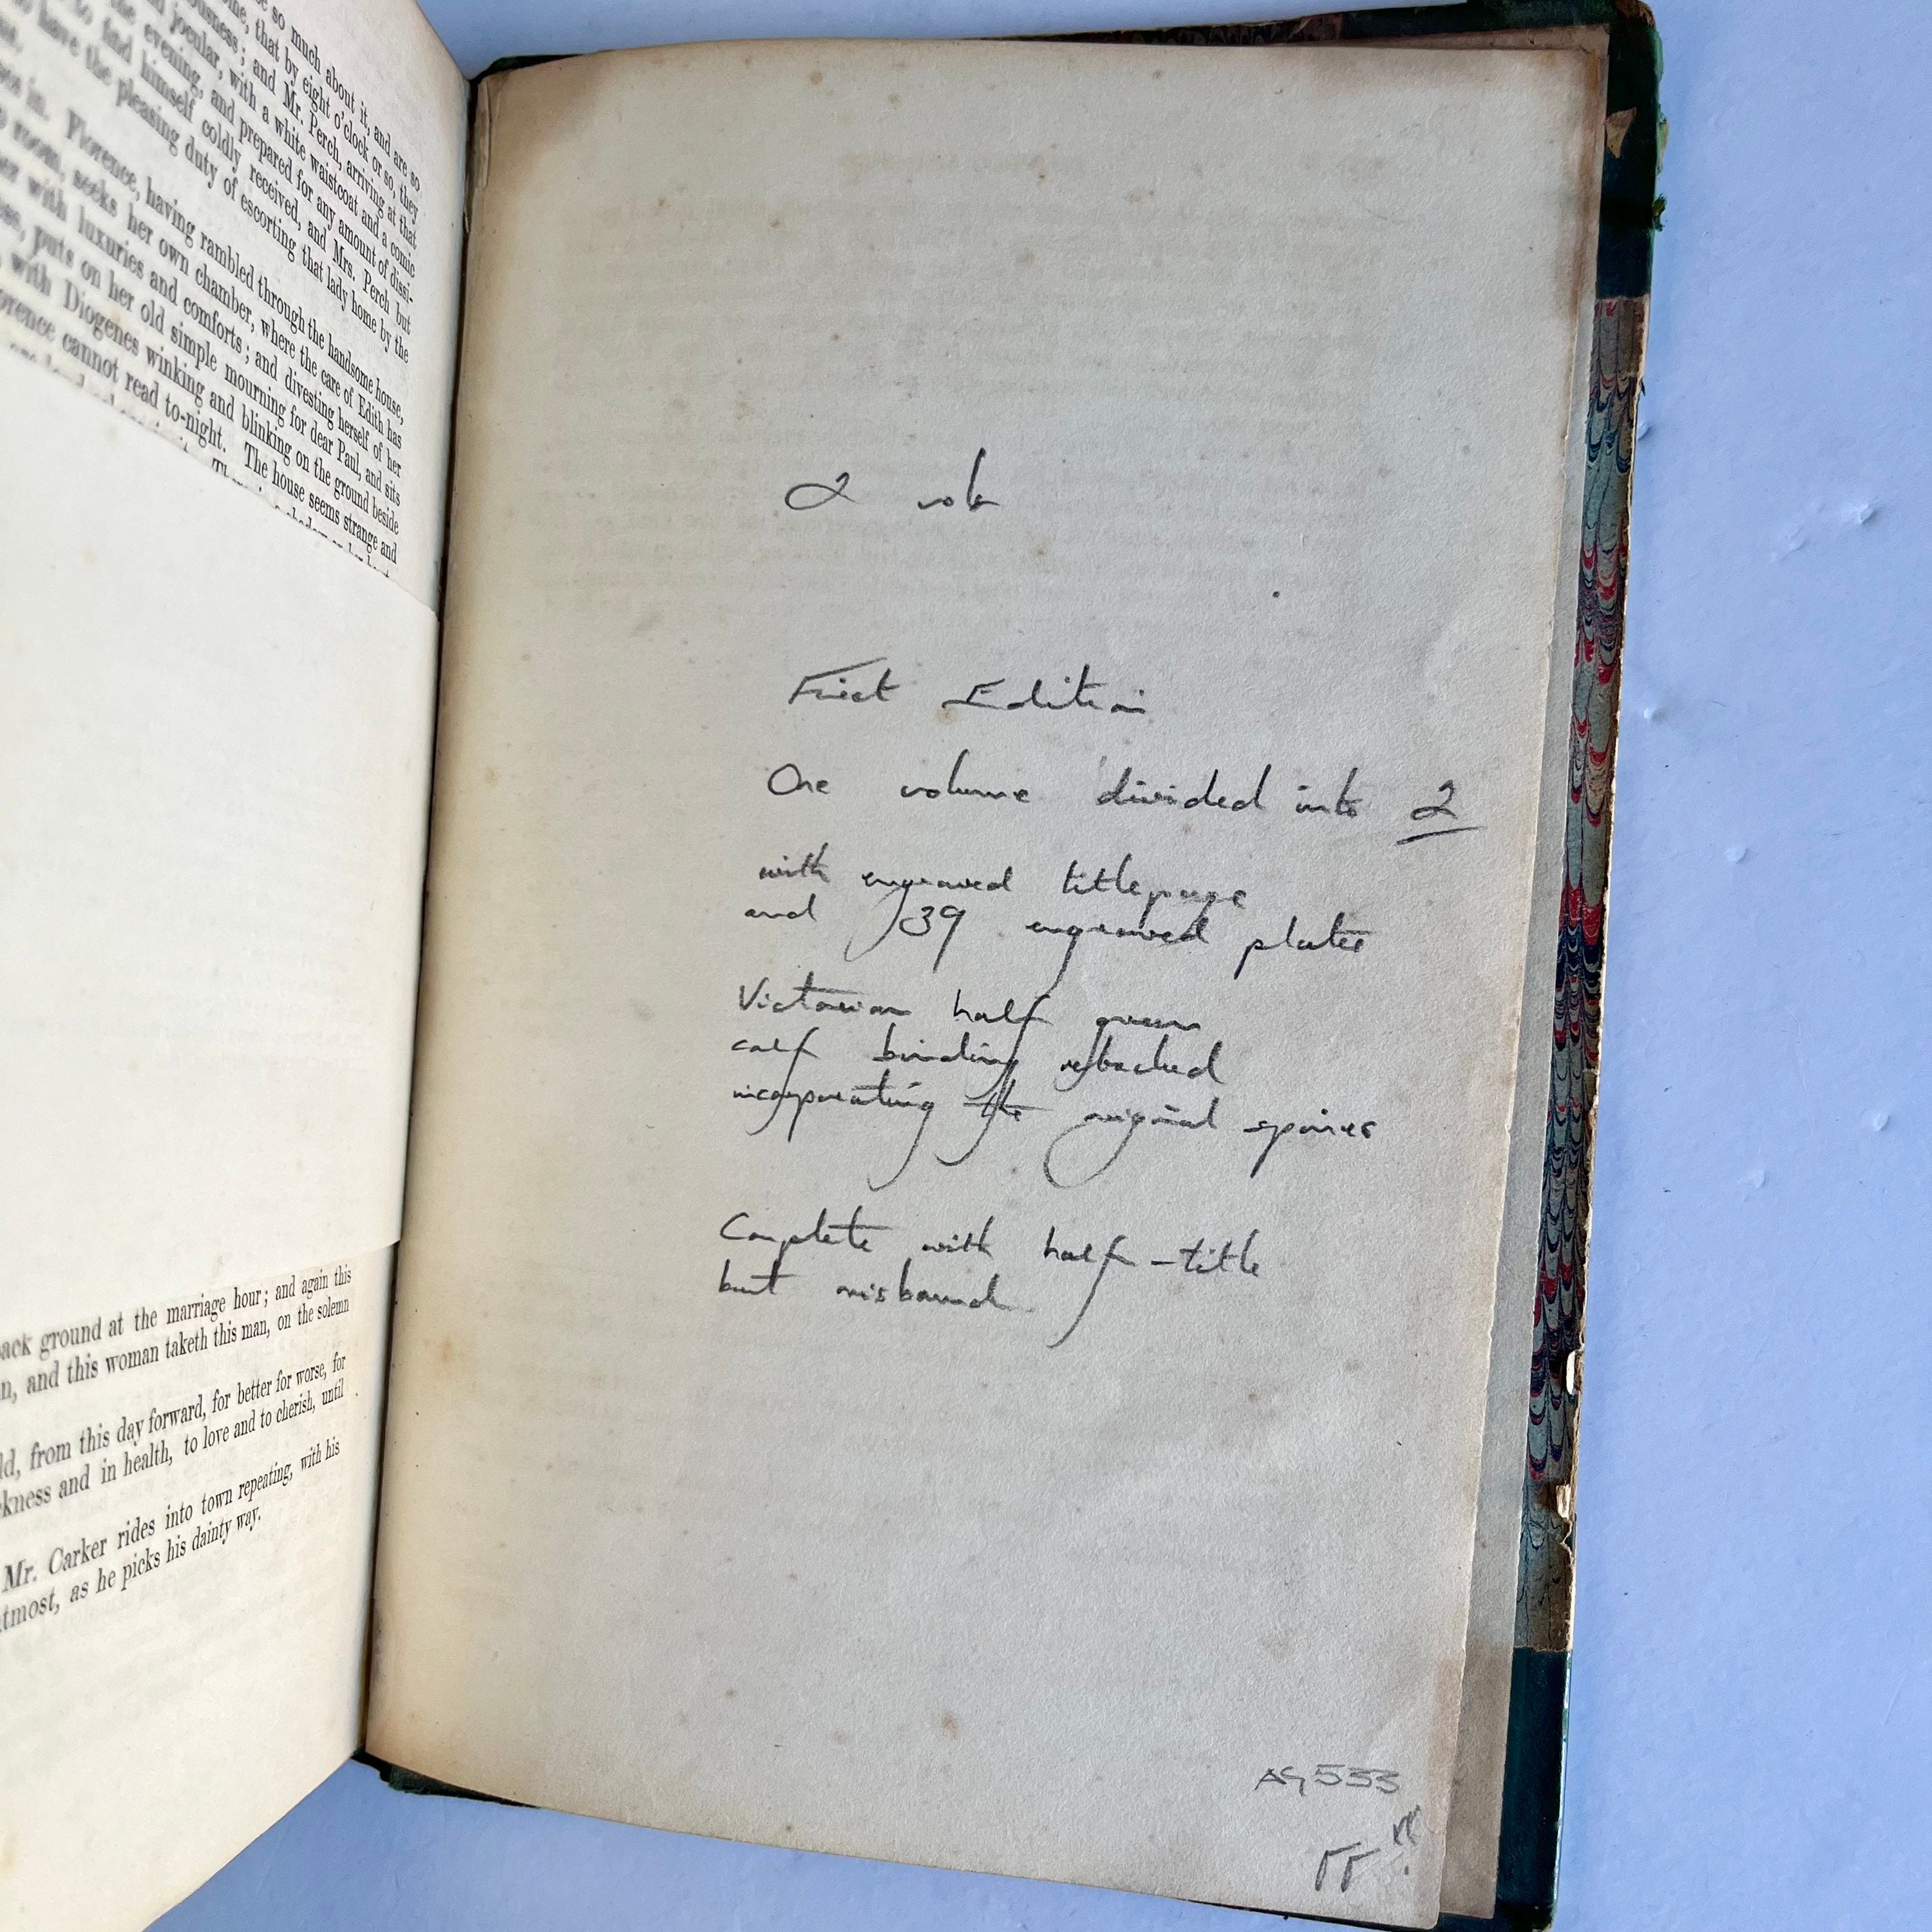 so much about it, and are so
that by eight o'clock or so, they
ousness; and Mr. Perch, arriving at that
d jocular, with a white waistcoat and a comic
the evening, and prepared for any amount of dissi-
to find himself coldly received, and Mrs. Perch but
have the pleasing duty of escorting that lady home by the
in. Florence, having rambled through the handsome house,
room, seeks her own chamber, where the care of Edith has
her with luxuries and comforts; and divesting herself of her
puts on her old simple mourning for dear Paul, and sits
with Diogenes winking and blinking on the ground beside
orence cannot read to-night. The house seems strange and
ack ground at the marriage hour; and again this
n, and this woman taketh this man, on the solemn
ld, from this day forward, for better for worse, for
kness and in health, to love and to cherish, until
Mr. Carker rides into town repeating, with his
tmost, as he picks his dainty way.
2 vols
First Edition
One volume divided into 2
with engraved titlepage
and 39 engraved plates
Victorian half green
calf binding rebacked
incorporating the original spines
Complete with half-title
but misbound
AG533